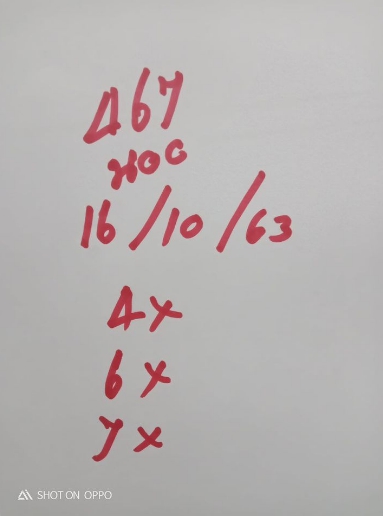 467
16/10/63
4x
6x
7x
SHOT ON OPPO